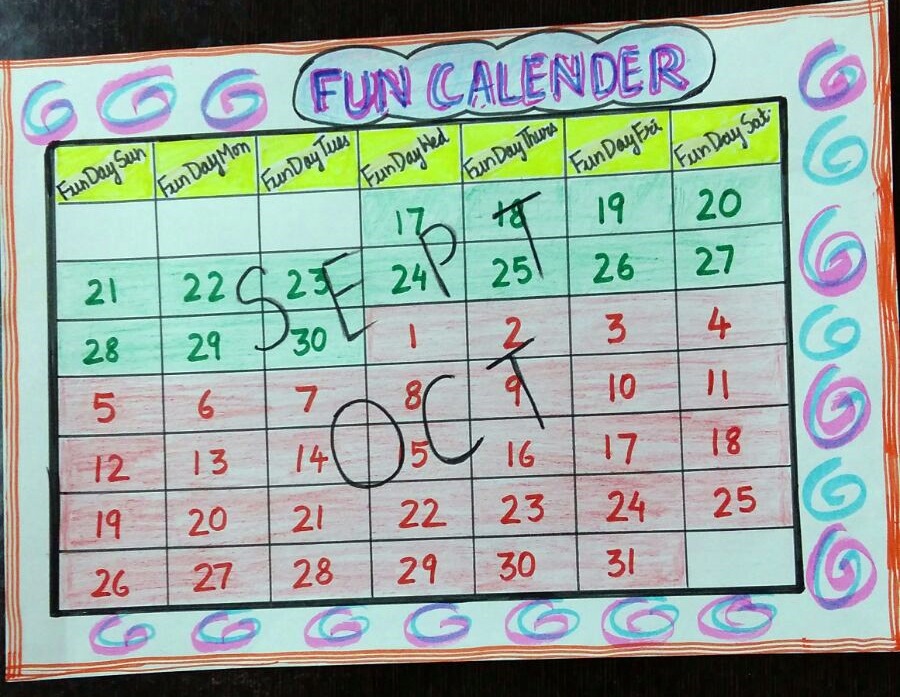 FUN CALENDER
FunDay Sun FunDay Mon FunDay Tues FunDay Wed FunDay Thurs FunDay Fri FunDay Sat.
17 18 19 20
21 22 23 24 25 26 27
SEPT
28 29 30 1 2 3 4
5 6 7 8 9 10 11
OCT
12 13 14 15 16 17 18
19 20 21 22 23 24 25
26 27 28 29 30 31